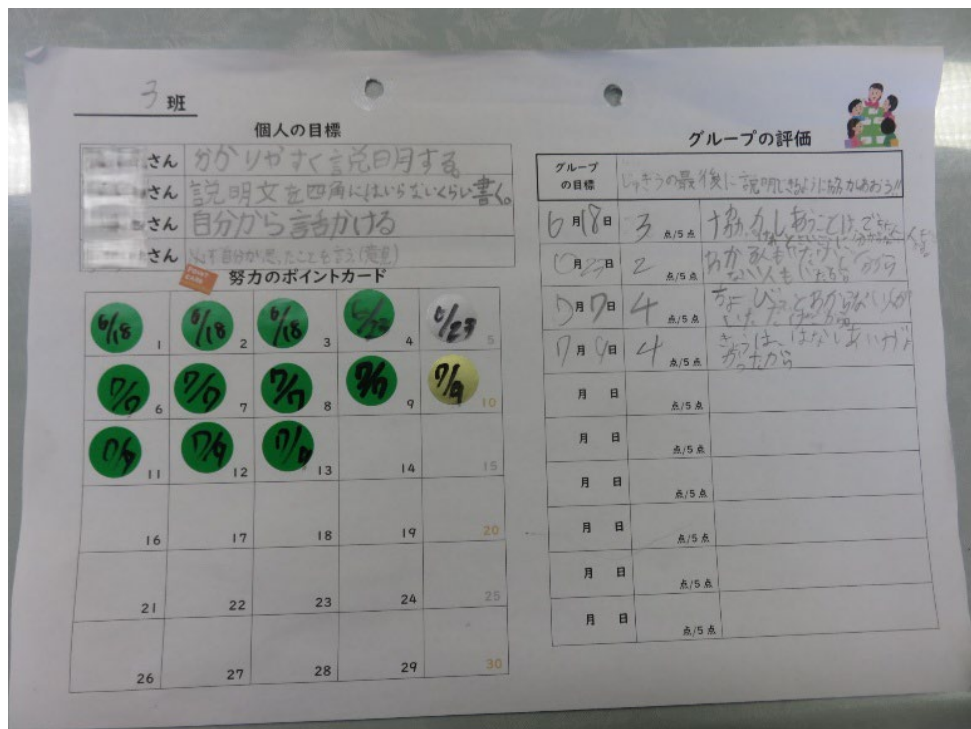 3班
個人の目標
さん わかりやすく説明する。
さん 説明文を四角にはいらないくらい書く。
さん 自分から話かける
さん 必ず自分が思ったことを言う(意見)
POINT CARD
努力のポイントカード
6/18 1 6/18 2 6/18 3 6/23 4 6/23 5
7/7 6 7/7 7 7/7 8 9 7/9 10
7/9 11 7/9 12 7/9 13 14 15
16 17 18 19 20
21 22 23 24 25
26 27 28 29 30
グループの評価
グループの目標 じゅぎょうの最後に説明できるように協力しあおう!!
6月18日 3点/5点 協力しあうことは、できた
6月23日 2点/5点
7月7日 4点/5点 ちょびっとわからない人が
7月9日 4点/5点 きょうは、はなしあいがよかったから
月 日 点/5点
月 日 点/5点
月 日 点/5点
月 日 点/5点
月 日 点/5点
月 日 点/5点